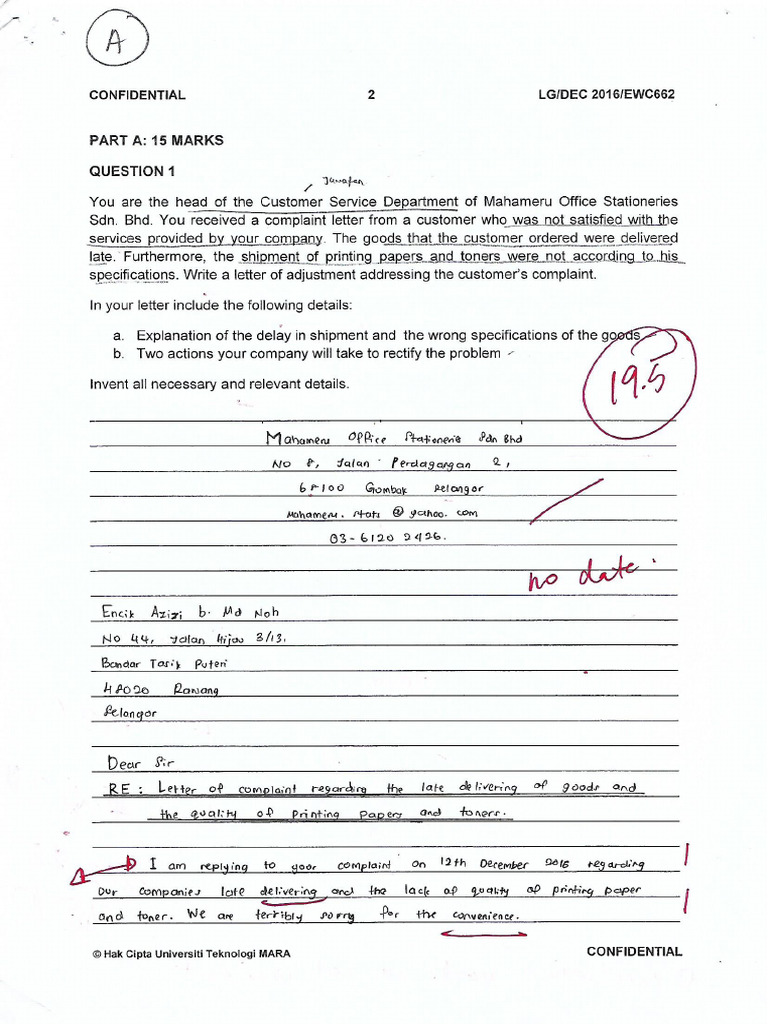 A
CONFIDENTIAL 2 LG/DEC 2016/EWC662
PART A: 15 MARKS
QUESTION 1
Jawatan
You are the head of the Customer Service Department of Mahameru Office Stationeries
Sdn. Bhd. You received a complaint letter from a customer who was not satisfied with the
services provided by your company. The goods that the customer ordered were delivered
late. Furthermore, the shipment of printing papers and toners were not according to his
specifications. Write a letter of adjustment addressing the customer's complaint.
In your letter include the following details:
a. Explanation of the delay in shipment and the wrong specifications of the goods
b. Two actions your company will take to rectify the problem
19.5
Invent all necessary and relevant details.
Mahameru Office Stationerie Sdn Bhd
No 8, Jalan Perdagangan 2,
68100 Gombak Selangor
Mahameru. stati @ yahoo. com
03-6120 2426.
no date.
Encik Azizi b. Md Noh
No 44, Jalan Hijau 3/13.
Bandar Tasik Puteri
48020 Rawang
Selangor
Dear Sir
RE : Letter of complaint regarding the late delivering of goods and
the quality of Printing Papers and toners.
I am replying to your complaint on 12th December 2016 regarding
our companies late delivering and the lack of quality of printing paper
and toner. We are terribly sorry for the convenience.
© Hak Cipta Universiti Teknologi MARA CONFIDENTIAL